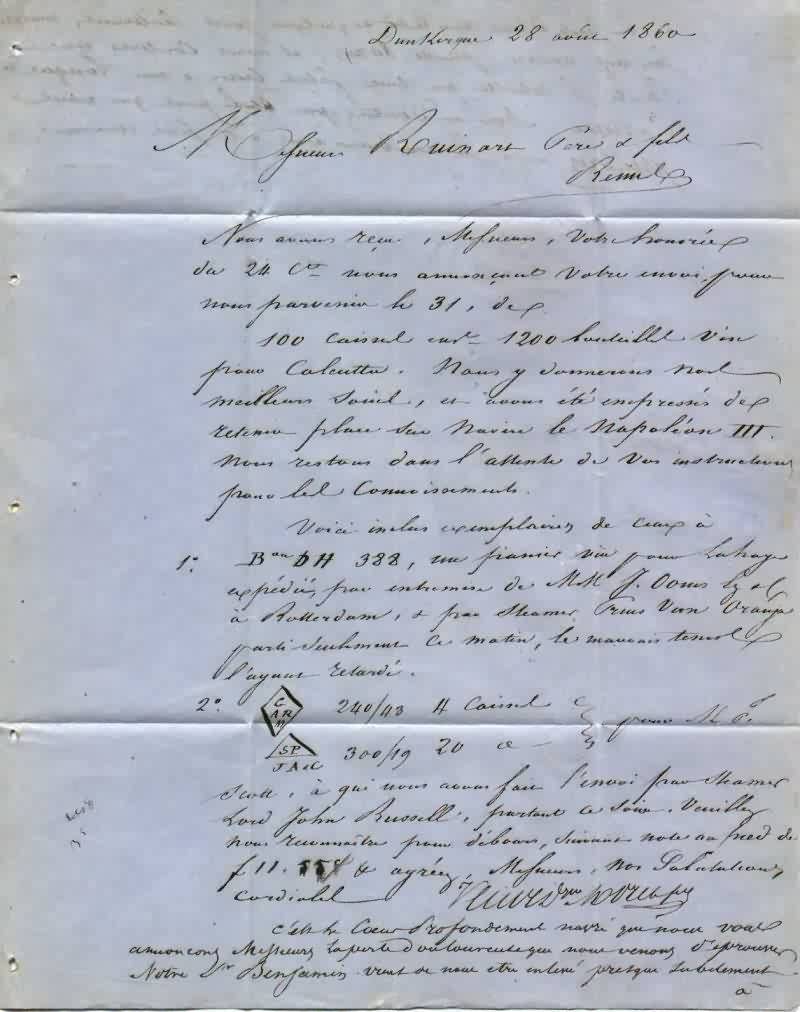 Dunkerque 28 août 1860
Messieurs Ruinart Père & fils
Reims
Nous avons reçu, Messieurs, Votre honorée
du 24 Ct nous annonçant Votre envoi pour
nous parvenir le 31, de
100 Caisses 1200 bouteilles Vin
pour Calcutta. Nous y donnerons nos
meilleurs soins, et avons été empressés de
retenir place sur Navire le Napoléon III.
Nous restons dans l'attente de Vos instructions
pour les Connaissements.
Voici inclus exemplaires de ceux à
1° H 388, un panier vin pour Lahaye
expédiés par entremise de MM J. Ooms
à Rotterdam, & par Steamer Prins Van Oranje
parti seulement ce matin, le mauvais temps
l'ayant retardé.
2° C AR M 240/43 4 Caisses
SP J A & C 300/19 20 do pour M P.
Scott, à qui nous avons fait l'envoi par Steamer
Lord John Russell, partant ce soir. Veuillez
nous reconnaître pour débours, suivant note au pied de
f 11. & agréez, Messieurs, nos Salutations
Cordiales
C'est le Cœur Profondement navré que nous vous
annonçons Messieurs la perte douloureuse que nous venons d'eprouver
Notre Sr Benjamin vient de nous etre enlevé presque subitement
à